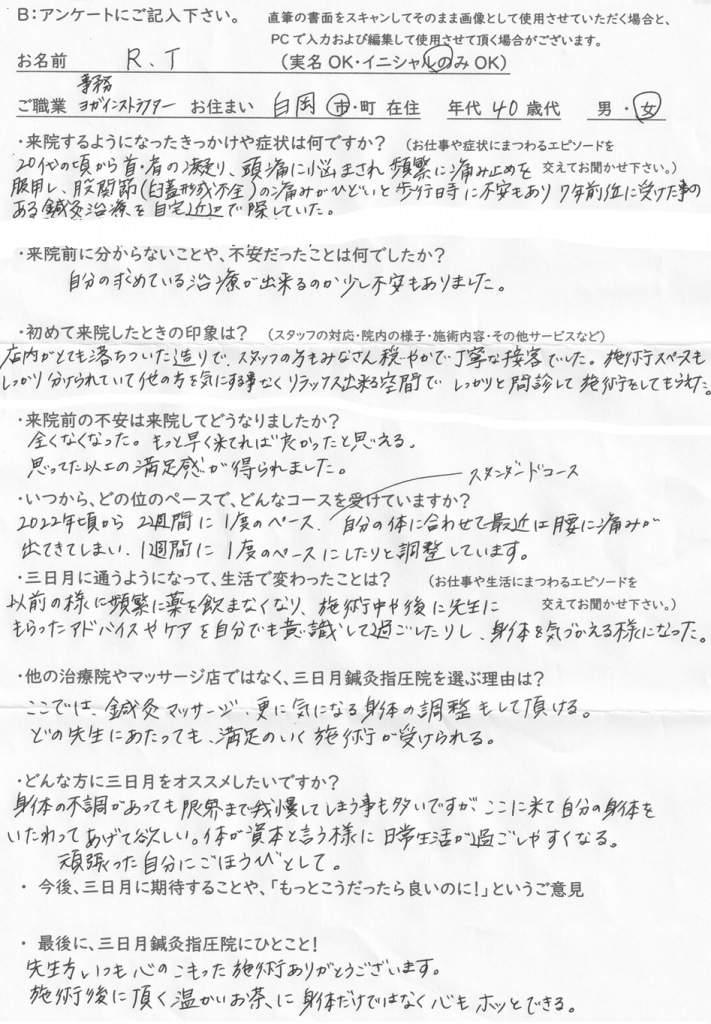 B:アンケートにご記入下さい。 直筆の書面をスキャンしてそのまま画像として使用させていただく場合と、
PCで入力および編集して使用させて頂く場合がございます。
お名前 R.T (実名OK・イニシャルのみOK)
事務
ご職業 ヨガインストラクター お住まい 白岡 市・町 在住 年代 40 歳代 男・女
・来院するようになったきっかけや症状は何ですか? (お仕事や症状にまつわるエピソードを
交えてお聞かせ下さい。)
20代の頃から首・肩の凝り、頭痛に悩まされ頻繁に痛み止めを
服用し、股関節(臼蓋形成不全)の痛みがひどいと歩行時に不安もあり7年前位に受けた事の
ある鍼灸治療を自宅近辺で探していた。
・来院前に分からないことや、不安だったことは何でしたか?
自分の求めている治療が出来るのか少し不安もありました。
・初めて来院したときの印象は? (スタッフの対応・院内の様子・施術内容・その他サービスなど)
店内がとても落ちついた造りで、スタッフの方もみなさん穏やかで丁寧な接客でした。施術スペースも
しっかり分けられていて他の方を気にする事なくリラックス出来る空間でしっかりと問診して施術をしてもらえた。
・来院前の不安は来院してどうなりましたか?
全くなくなった。もっと早く来てれば良かったと思える。
思ってた以上の満足感が得られました。
スタンダードコース
・いつから、どの位のペースで、どんなコースを受けていますか?
2022年頃から 2週間に1度のペース、自分の体に合わせて最近は腰に痛みが
出てきてしまい、1週間に1度のペースにしたりと調整しています。
・三日月に通うようになって、生活で変わったことは? (お仕事や生活にまつわるエピソードを
交えてお聞かせ下さい。)
以前の様に頻繁に薬を飲まなくなり、施術中や後に先生に
もらったアドバイスやケアを自分でも意識して過ごしたりし、身体を気づかえる様になった。
・他の治療院やマッサージ店ではなく、三日月鍼灸指圧院を選ぶ理由は?
ここでは、鍼灸マッサージ、更に気になる身体の調整もして頂ける。
どの先生にあたっても、満足のいく施術が受けられる。
・どんな方に三日月をオススメしたいですか?
身体の不調があっても限界まで我慢してしまう事も多いですが、ここに来て自分の身体を
いたわってあげて欲しい。体が資本と言う様に日常生活が過ごしやすくなる。
頑張った自分にごほうびとして。
・今後、三日月に期待することや、「もっとこうだったら良いのに!」というご意見
・最後に、三日月鍼灸指圧院にひとこと!
先生方いつも心のこもった施術ありがとうございます。
施術後に頂く温かいお茶、に身体だけではなく心もホッとできる。